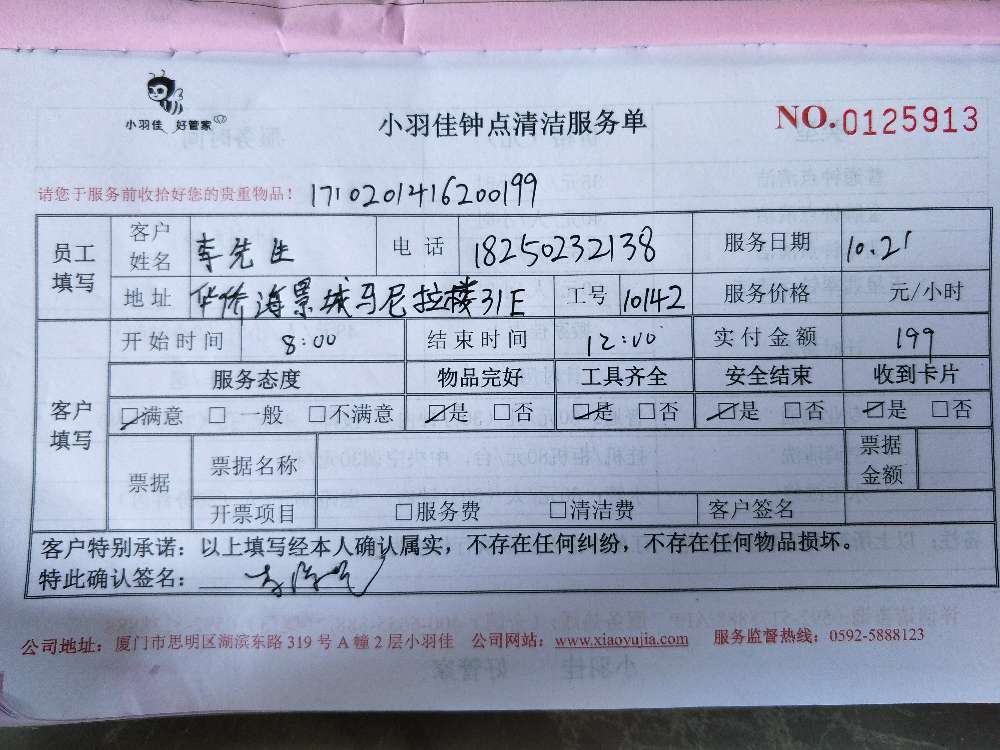 小羽佳 好管家
小羽佳钟点清洁服务单
NO.0125913
请您于服务前收拾好您的贵重物品！ 171020141620019​9
员工填写 客户姓名 李先生 电话 18250232138 服务日期 10.21
地址 华侨海景城马尼拉楼31E 工号 10142 服务价格 元/小时
客户填写 开始时间 8:00 结束时间 12:00 实付金额 199
服务态度 物品完好 工具齐全 安全结束 收到卡片
☑满意 □ 一般 □不满意 ☑是 □否 ☑是 □否 ☑是 □否 ☑是 □否
票据 票据名称 票据金额
开票项目 □服务费 □清洁费 客户签名
客户特别承诺：以上填写经本人确认属实，不存在任何纠纷，不存在任何物品损坏。
特此确认签名：
公司地址：厦门市思明区湖滨东路 319 号 A 幢 2 层小羽佳 公司网站：www.xiaoyujia.com 服务监督热线：0592-5888123